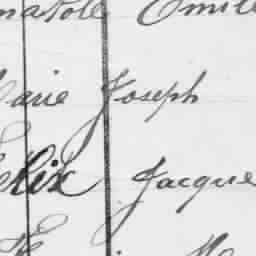 natole Emile
arie Joseph
elix Jacque